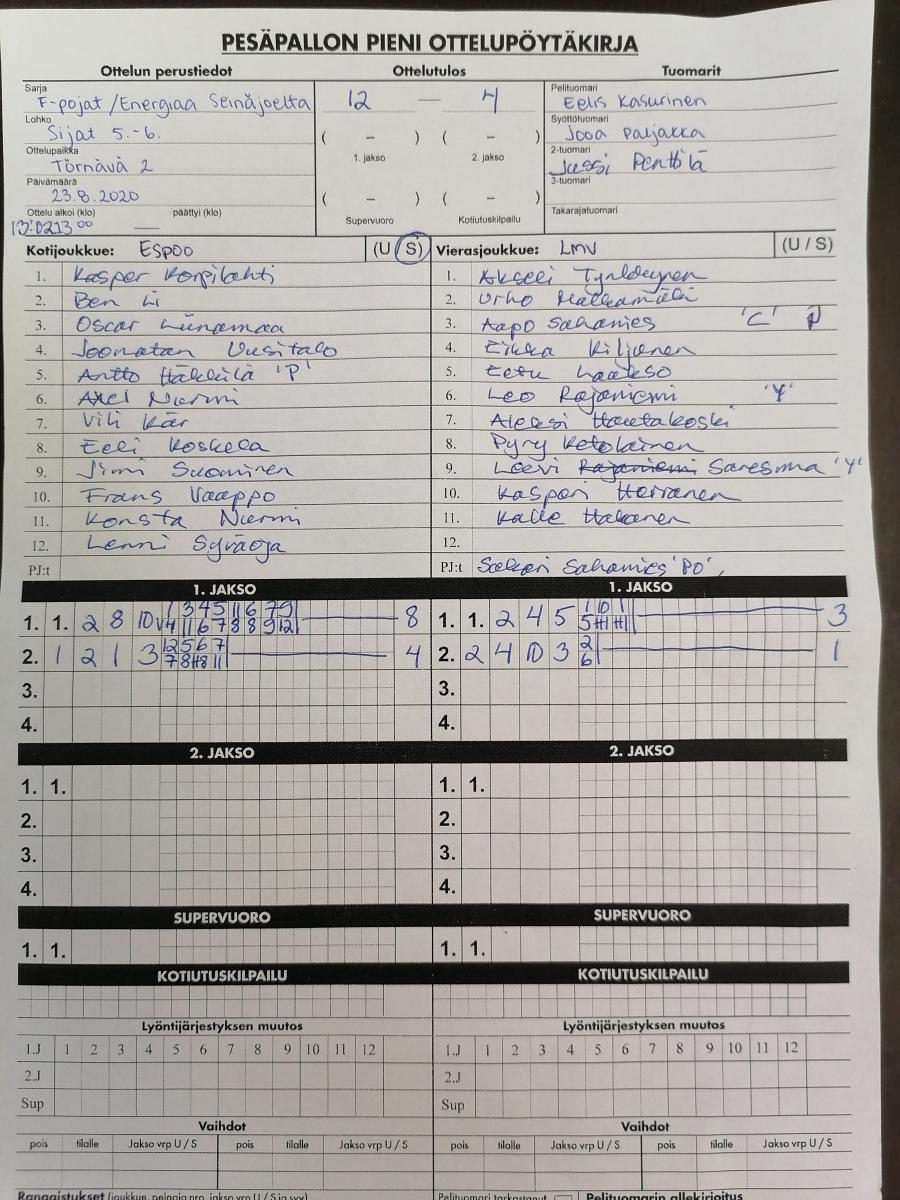 PESÄPALLON PIENI OTTELUPÖYTÄKIRJA
Ottelun perustiedot Ottelutulos Tuomarit
Sarja
F-pojat /Energiaa Seinäjoelta
Lohko
Sijat 5.-6.
Ottelupaikka
Törnävä 2
Päivämäärä
23.8.2020
Ottelu alkoi (klo) päättyi (klo)
13:02 13 00 —
12 — 4
( – ) ( – )
1. jakso 2. jakso
( – ) ( – )
Supervuoro Kotiutuskilpailu
Pelituomari
Eelis Kasurinen
Syöttötuomari
Jooa Parjakka
2-tuomari
Jussi Penttilä
3-tuomari
Takarajatuomari
Kotijoukkue: Espoo (U / S)
1. Kasper Korpilahti
2. Ben Li
3. Oscar Linnamaa
4. Joonatan Uusitalo
5. Antto Häkkilä 'P'
6. Axel Nurmi
7. Vili Kär
8. Eeli Koskela
9. Jimi Suominen
10. Frans Vaappo
11. Konsta Nurmi
12. Lenni Syväoja
PJ:t
Vierasjoukkue: LMV (U / S)
1. Akseli
2. Urho
3. Aapo Sahamies 'C' P
4. Eikka Kiljanen
5. Eetu
6. Leo Rajaniemi 'Y'
7. Aleksi Hautakoski
8. Pyry Ketolainen
9. Leevi Rajaniemi Saresma 'Y'
10. Kaspari Herranen
11. Kalle Hakanen
12.
PJ:t Sakari Sahamies 'PO',
1. JAKSO 1. JAKSO
1. 1. 2 8 10 8
2. 1 2 1 3 4
3.
4.
1. 1. 2 4 5 3
2. 2 4 10 3 2 6 1
3.
4.
2. JAKSO 2. JAKSO
1. 1. 1. 1.
2. 2.
3. 3.
4. 4.
SUPERVUORO SUPERVUORO
1. 1. 1. 1.
KOTIUTUSKILPAILU KOTIUTUSKILPAILU
Lyöntijärjestyksen muutos Lyöntijärjestyksen muutos
1.J 1 2 3 4 5 6 7 8 9 10 11 12 1.J 1 2 3 4 5 6 7 8 9 10 11 12
2.J 2.J
Sup Sup
Vaihdot Vaihdot
pois tilalle Jakso vrp U / S pois tilalle Jakso vrp U / S pois tilalle Jakso vrp U / S pois tilalle Jakso vrp U / S
Rangaistukset (joukkue, pelaaja nro, jakso vrp U / S ja syy) Pelituomari tarkastanut Pelituomarin allekirjoitus